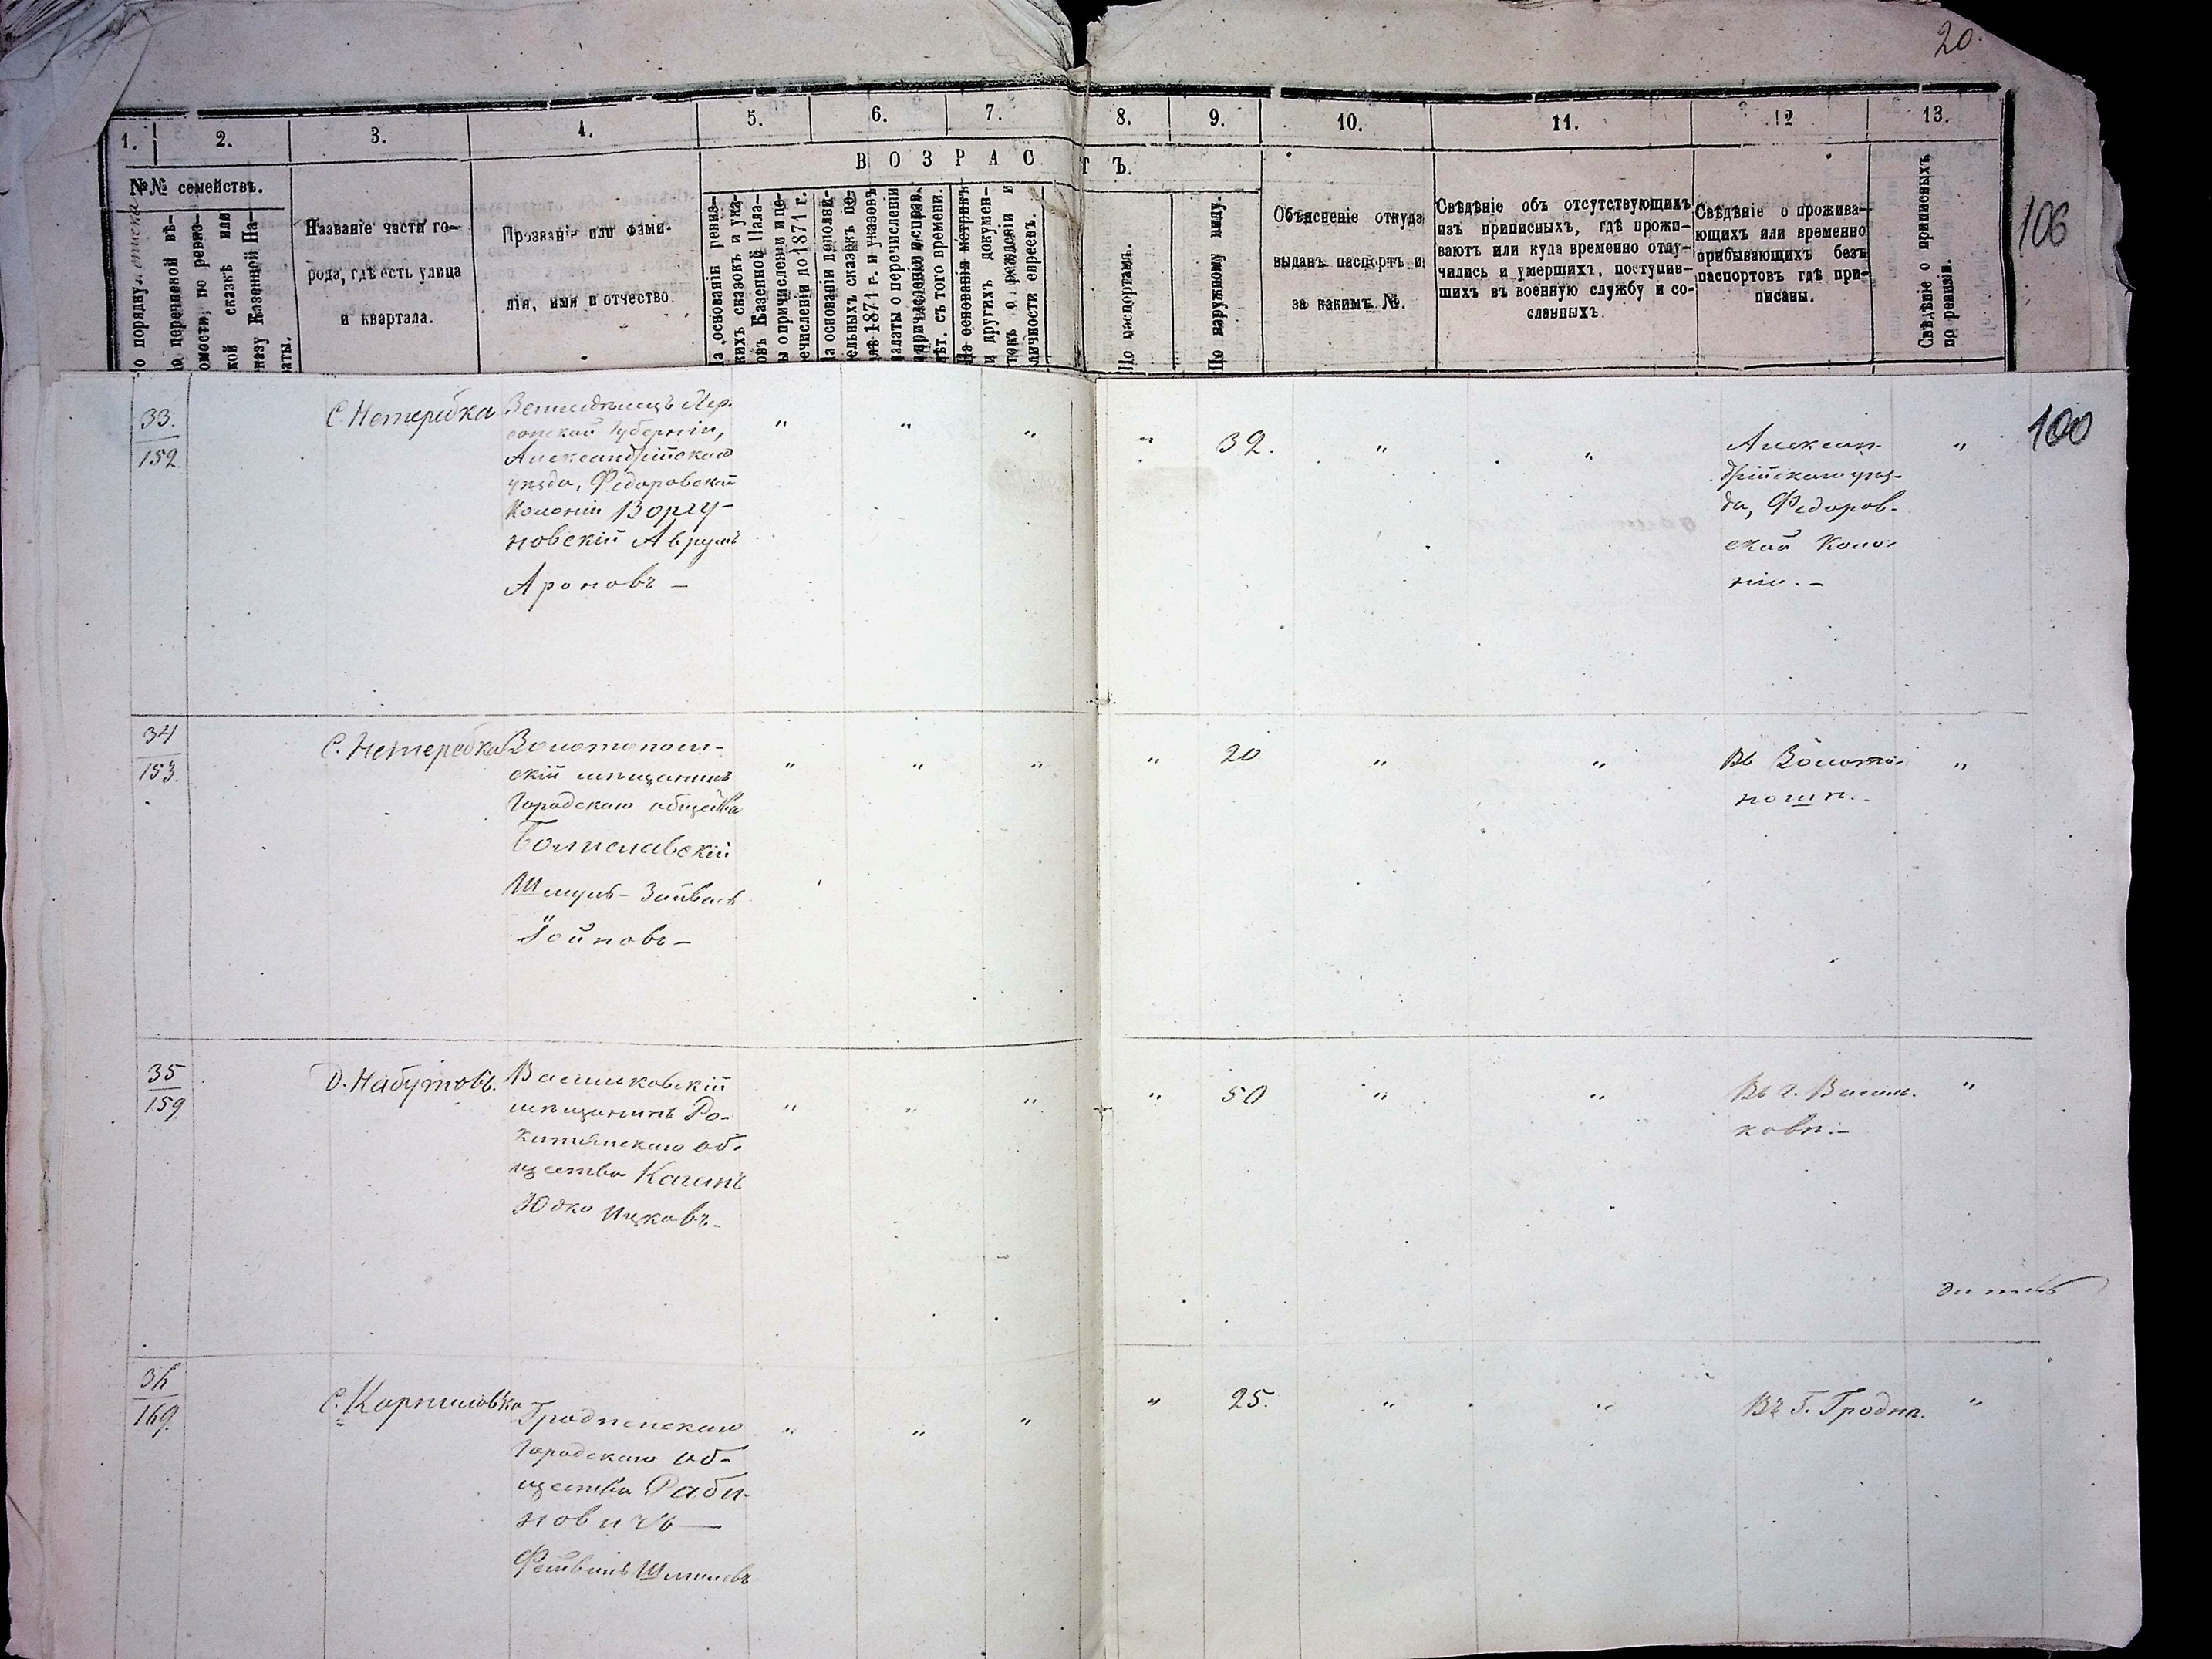 20.
1.
2.
3.
4.
5.
6.
7.
8.
9.
10.
11.
12
13.
ВОЗРАСТЪ.
№№ семействъ.
о порядку
о переписной вѣ-
омости, по ревиз-
кой сказкѣ или
казу Казенной Па-
аты.
Названіе части го-
рода, гдѣ есть улица
и квартала.
Прозваніе или фами-
лія, имя и отчество.
а основаніи ревиз-
кихъ сказокъ и ука-
овъ Казенной Пала-
ы о причисленіи и пе-
ечисленіи до 1871 г.
а основаніи дополни-
ельныхъ сказокъ по-
лѣ 1871 г. и указовъ
алаты о перечисленіи
лѣт. съ того времени.
На основаніи метрикъ
и другихъ докумен-
токъ о рожденіи и
личности евреевъ.
По паспортамъ.
По наружному виду.
Объясненіе откуда
выданъ паспортъ и
за какимъ №.
Свѣдѣніе объ отсутствующихъ
изъ приписныхъ, гдѣ прожи-
ваютъ или куда временно отлу-
чились и умершихъ, поступив-
шихъ въ военную службу и со-
сланныхъ.
Свѣдѣніе о прожива-
ющихъ или временно
прибывающихъ безъ
паспортовъ гдѣ при-
писаны.
Свѣдѣніе о приписныхъ
по ревизіи.
106
100
33.
152
С. Нетеребка
Земледѣлецъ Хер-
сонской губерніи,
Александрійскаго
уѣзда, Федоровской
Колоніи Воргу-
новскій Аврумъ
Ароновъ —
"
"
"
"
32.
"
"
Алексан-
дрійскаго уѣз-
да, Федоров-
ской Коло-
ніи. —
"
34
153.
С. Нетеребка
Золотонош-
скій мѣщанинъ
Городскаго общества
Богуславскій
Шмуль-Зайвель
Іойновъ —
"
"
"
"
20
"
"
Въ Золото-
ношѣ.
"
35
159
О. Набутовъ.
Васильковскій
мѣщанинъ Ро-
китянскаго об-
щества Каганъ
Юдко Ицковъ —
"
"
"
"
50
"
"
Въ г. Василь-
ковѣ. —
"
36
169.
С. Карпиловка
Гродненскаго
Городскаго об-
щества Раби-
новичъ —
Фейвишъ Шмилевъ
"
"
"
"
25.
"
"
Въ г. Гроднѣ.
"